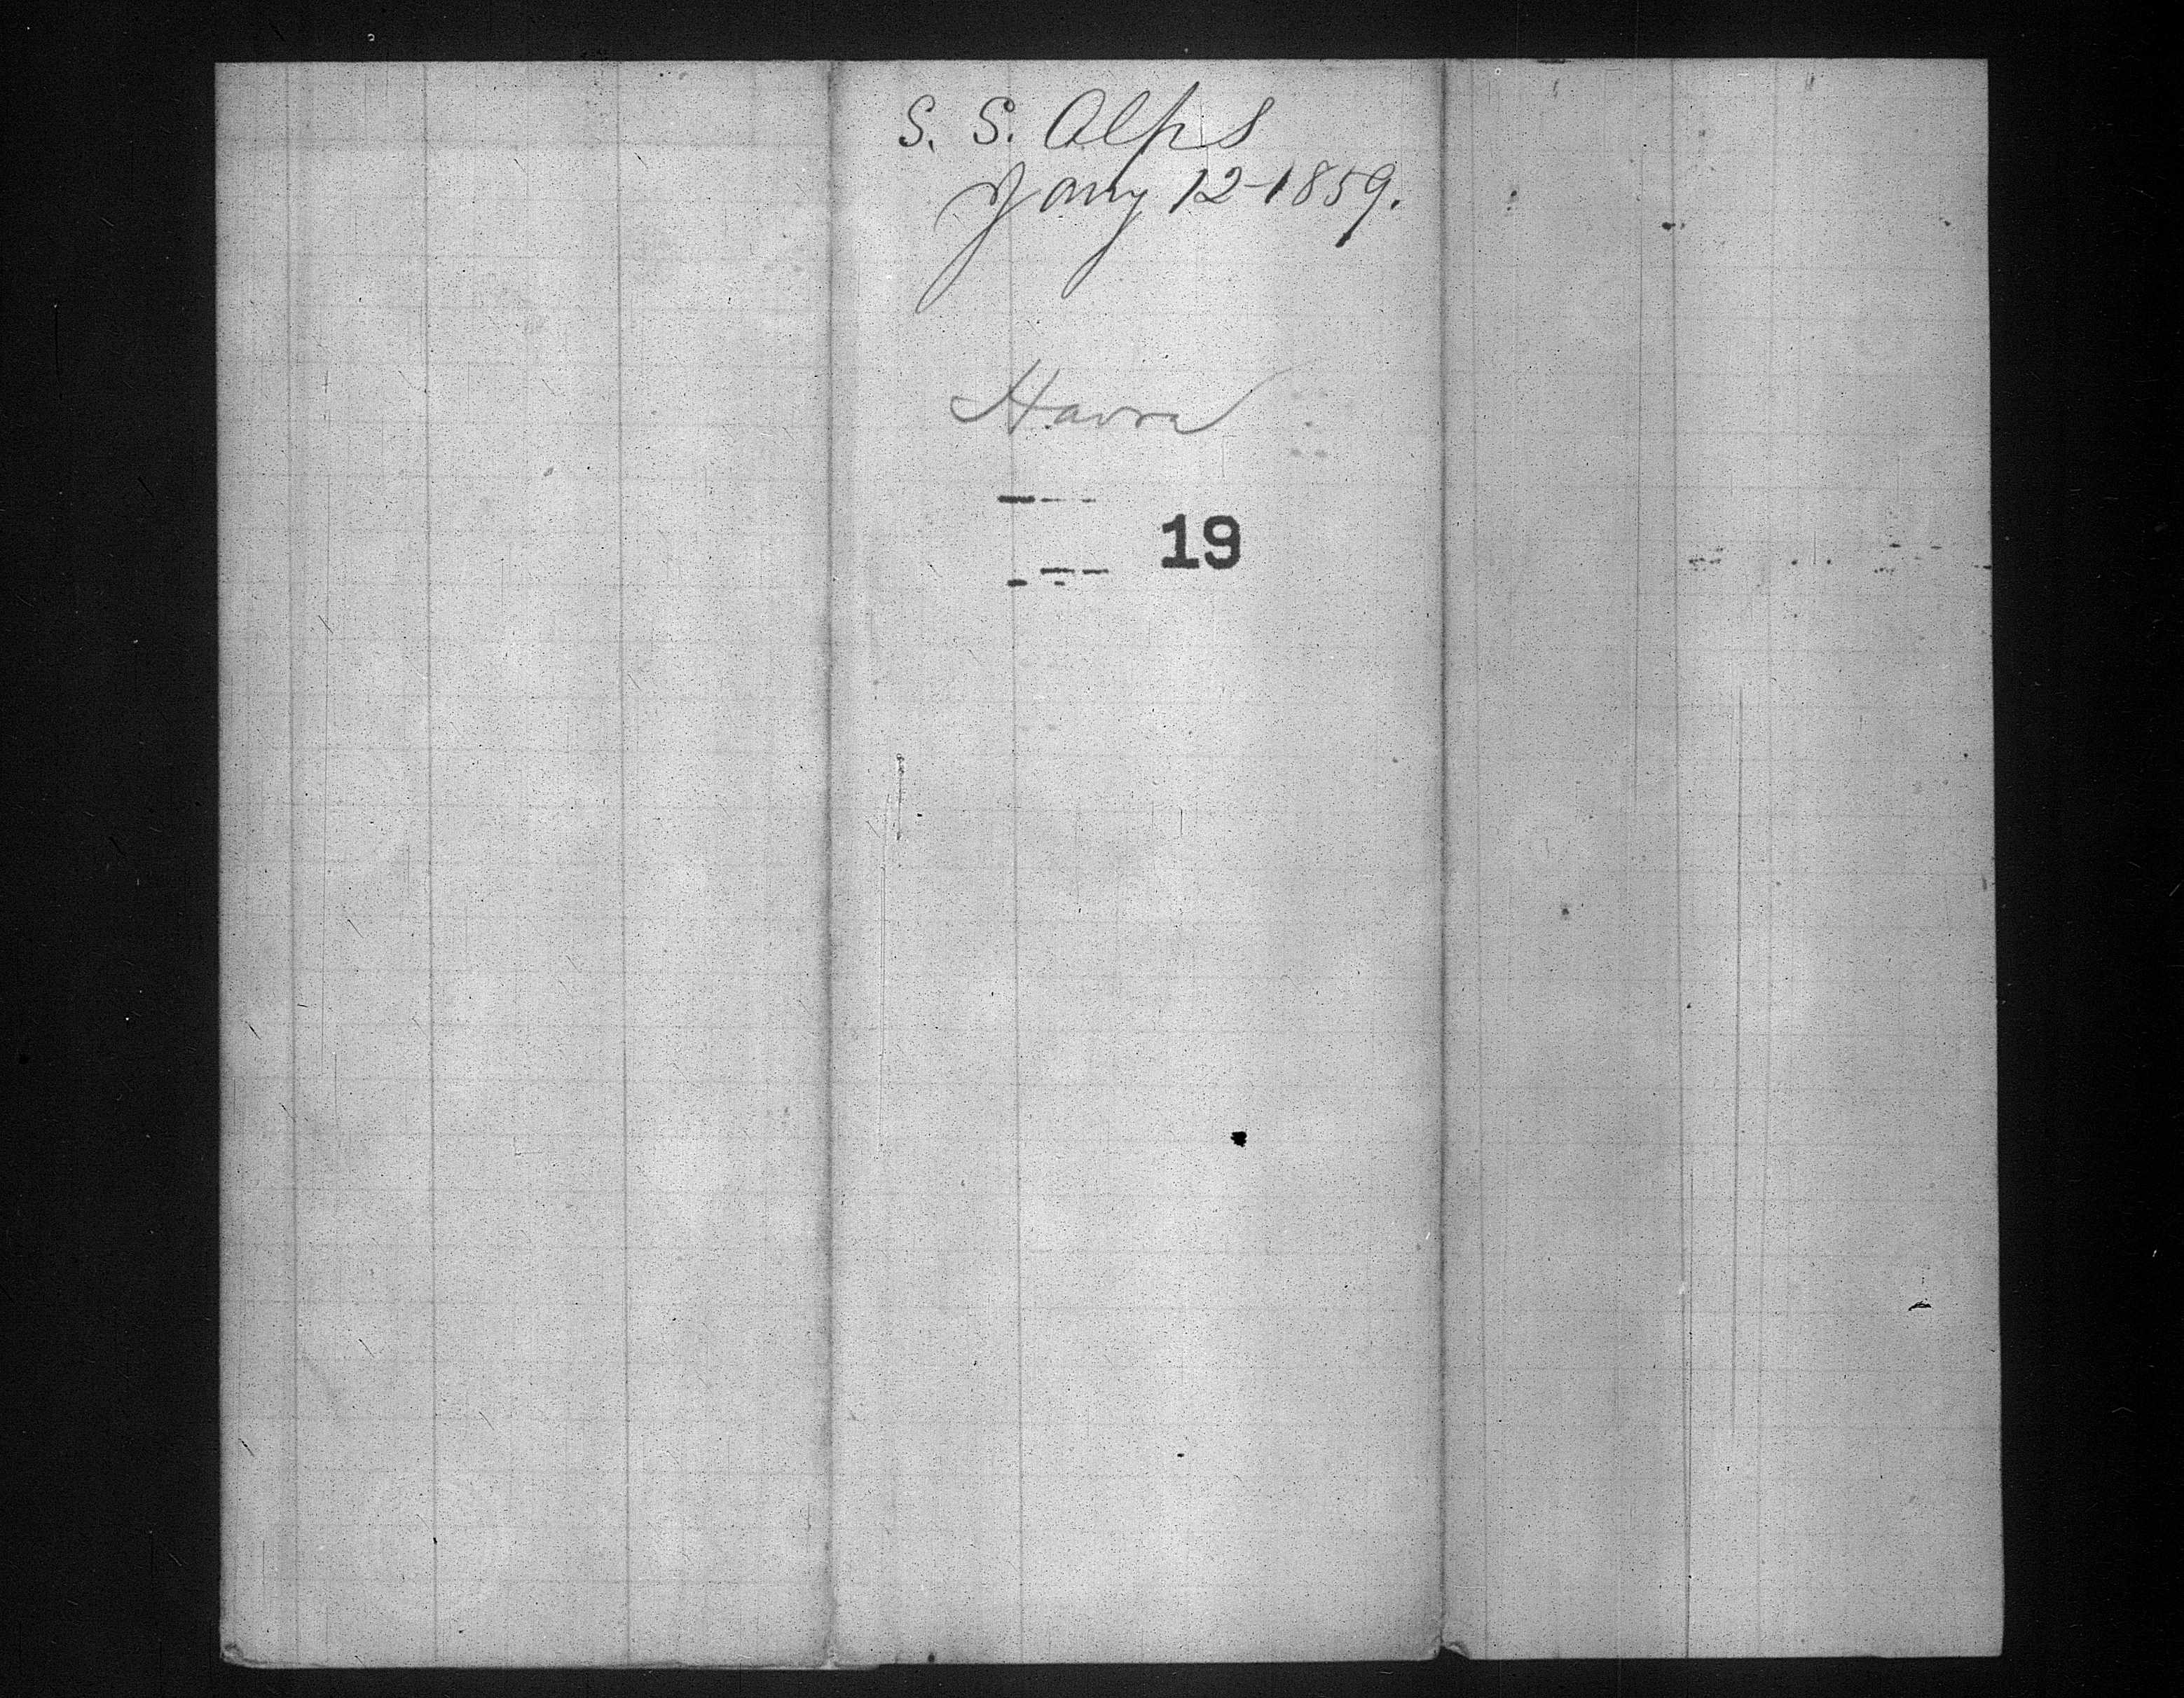 S. S. Alps
Jany 12-1859.
Havre
19